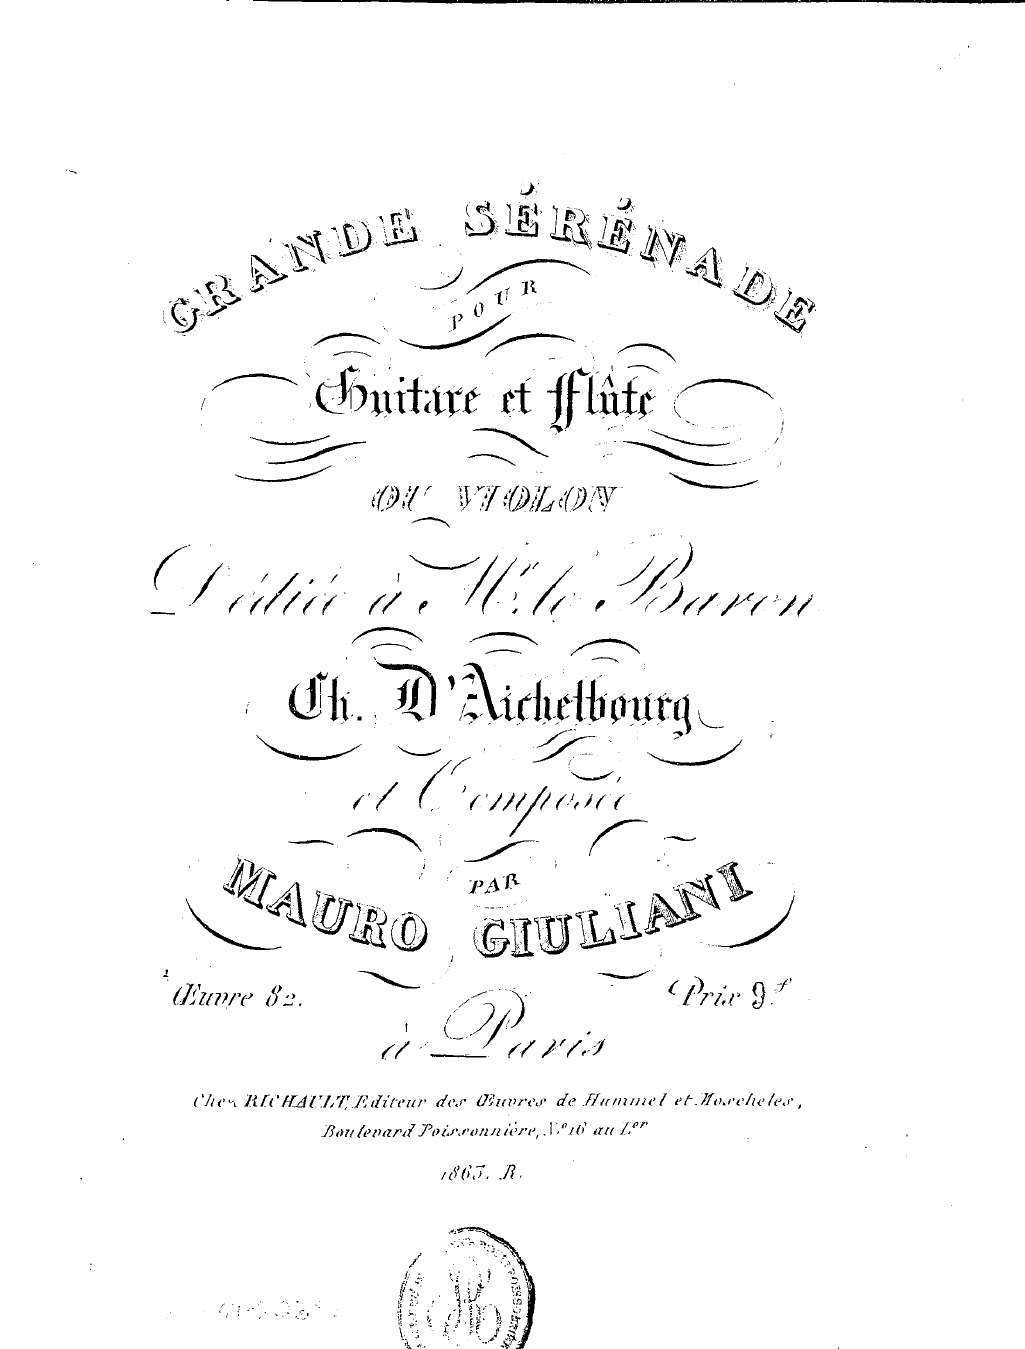 GRANDE SÉRÉNADE
POUR
Guitare et Flûte
OU VIOLON
Dédiée à Mr. le Baron
Ch. D'Aichelbourg
et Composée
PAR
MAURO GIULIANI
Œuvre 82.
Prix 9.f
à Paris
Chez RICHAULT, Editeur des Œuvres de Hummel et Moscheles,
Boulevard Poissonnière, N.o 16 au 1.er
1863. R.